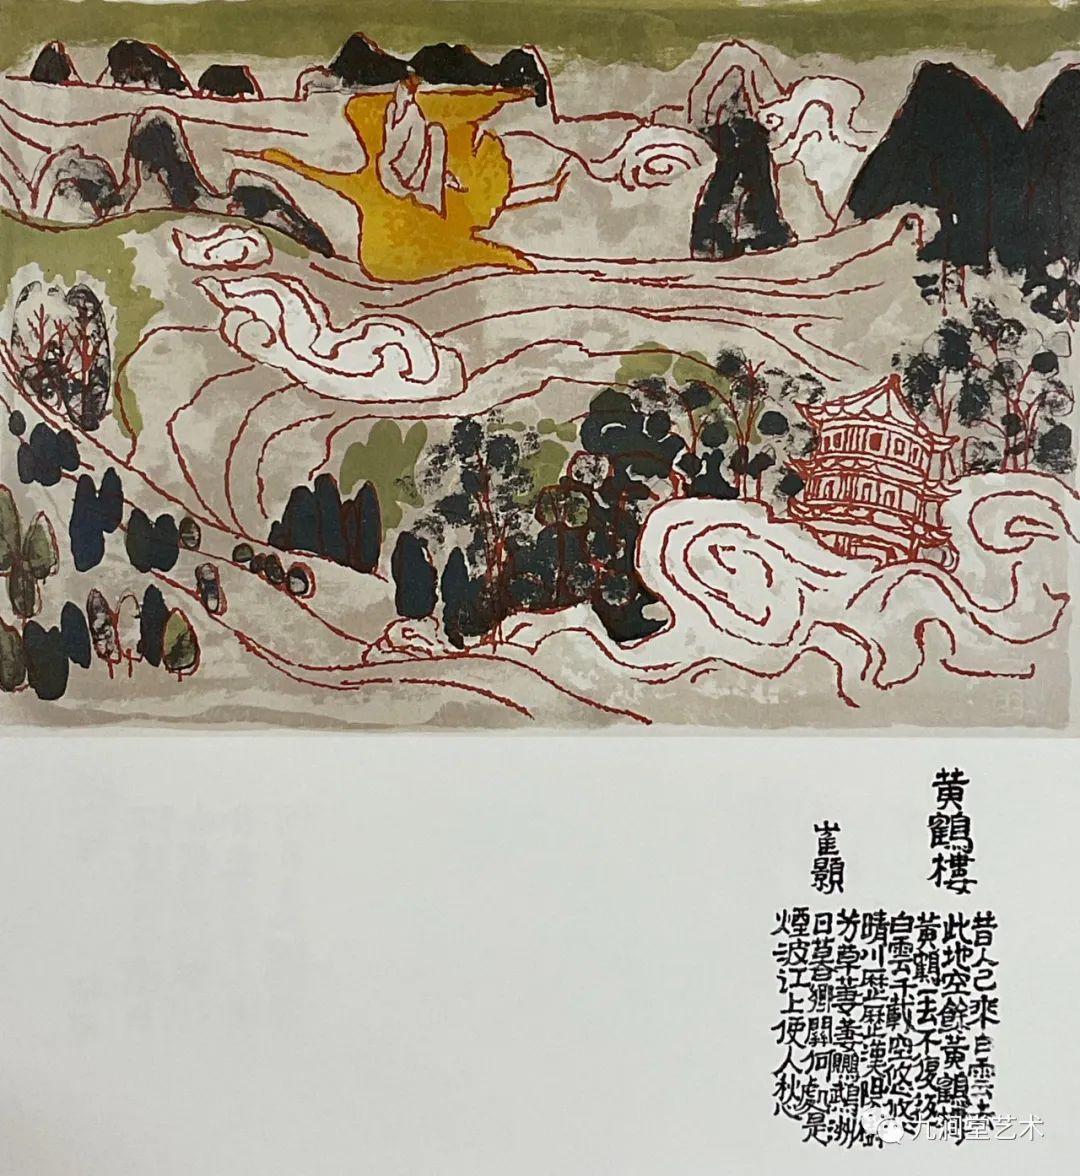 黄鶴樓
崔顥
昔人已乘白雲去
此地空餘黄鶴樓
黄鶴一去不復返
白雲千載空悠悠
晴川歷歷漢陽樹
芳草萋萋鸚鵡洲
日暮鄉關何處是
煙波江上使人愁
九涧堂艺术